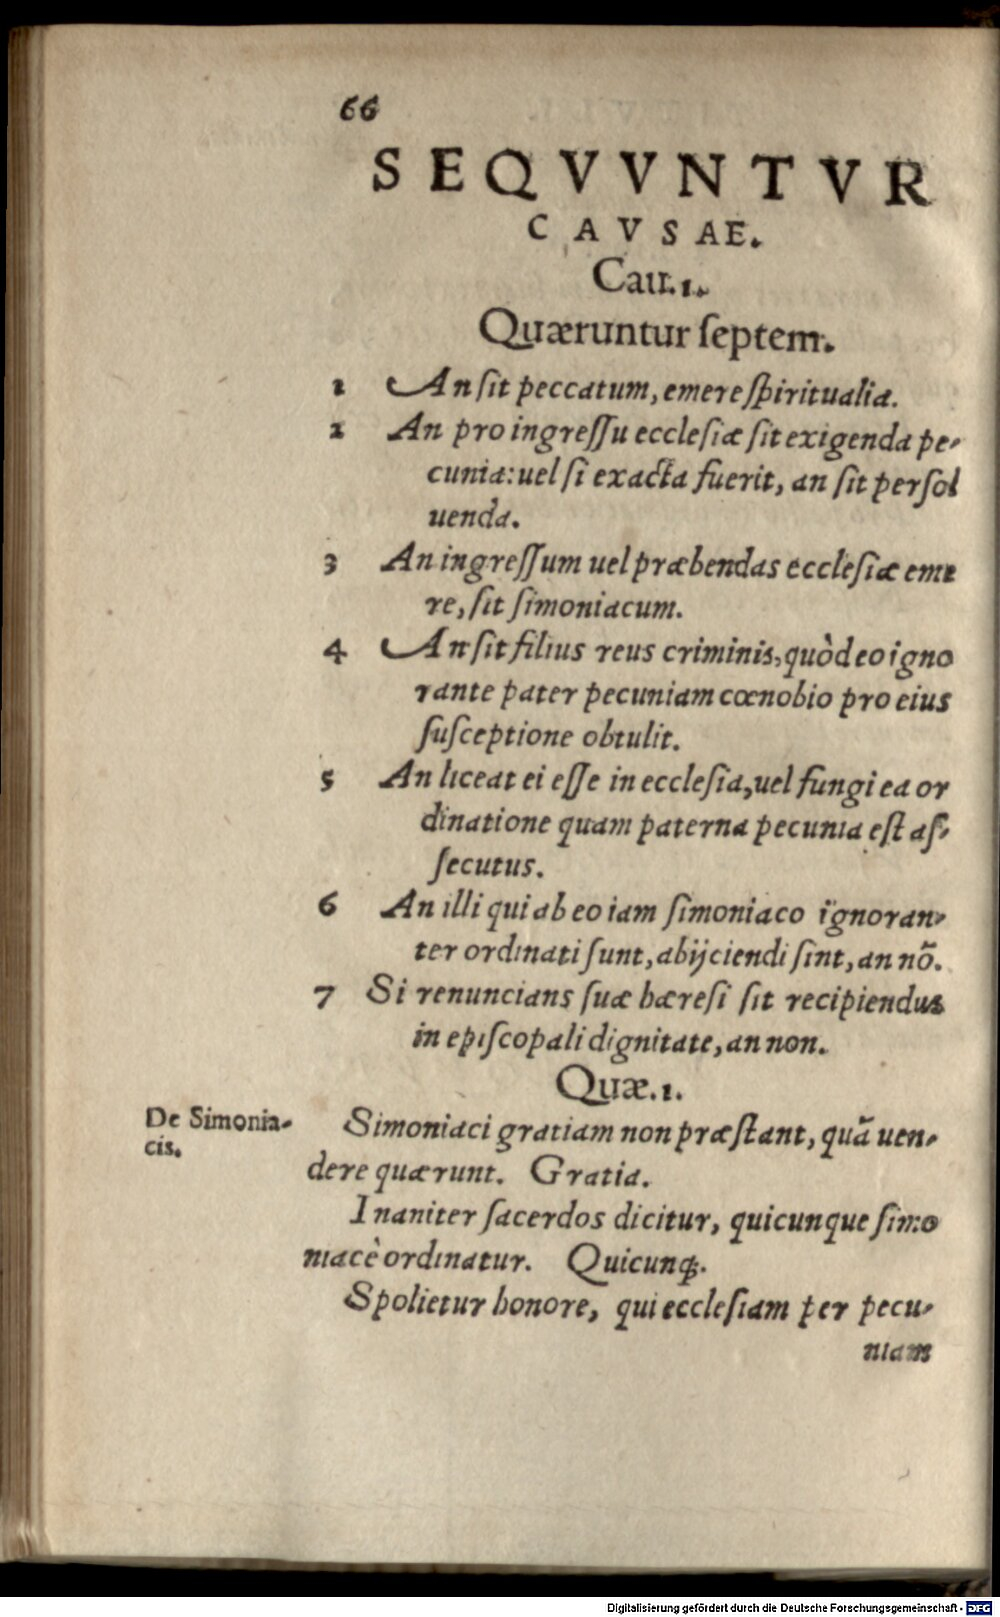 66
SEQVVNTVR
CAVSAE.
Cau.1.
Quæruntur ſeptem.
1 An ſit peccatum, emere ſpiritualia.
2 An pro ingreſſu eccleſiæ ſit exigenda pe-
cunia: uel ſi exacta fuerit, an ſit perſol
uenda.
3 An ingreſſum uel præbendas eccleſiæ eme
re, ſit ſimoniacum.
4 An ſit filius reus criminis, quòd eo igno
rante pater pecuniam cœnobio pro eius
ſuſceptione obtulit.
5 An liceat ei eſſe in eccleſia, uel fungi ea or
dinatione quam paterna pecunia eſt aſ-
ſecutus.
6 An illi qui ab eo iam ſimoniaco ignoran-
ter ordinati ſunt, abijciendi ſint, an nõ.
7 Si renuncians ſuæ hæreſi ſit recipiendus
in epiſcopali dignitate, an non.
Quæ.1.
De Simonia-
cis.
Simoniaci gratiam non præſtant, quã uen-
dere quærunt. Gratia.
Inaniter ſacerdos dicitur, quicunque ſimo
niacè ordinatur. Quicunq;.
Spolietur honore, qui eccleſiam per pecu-
niam
Digitalisierung gefördert durch die Deutsche Forschungsgemeinschaft - DFG